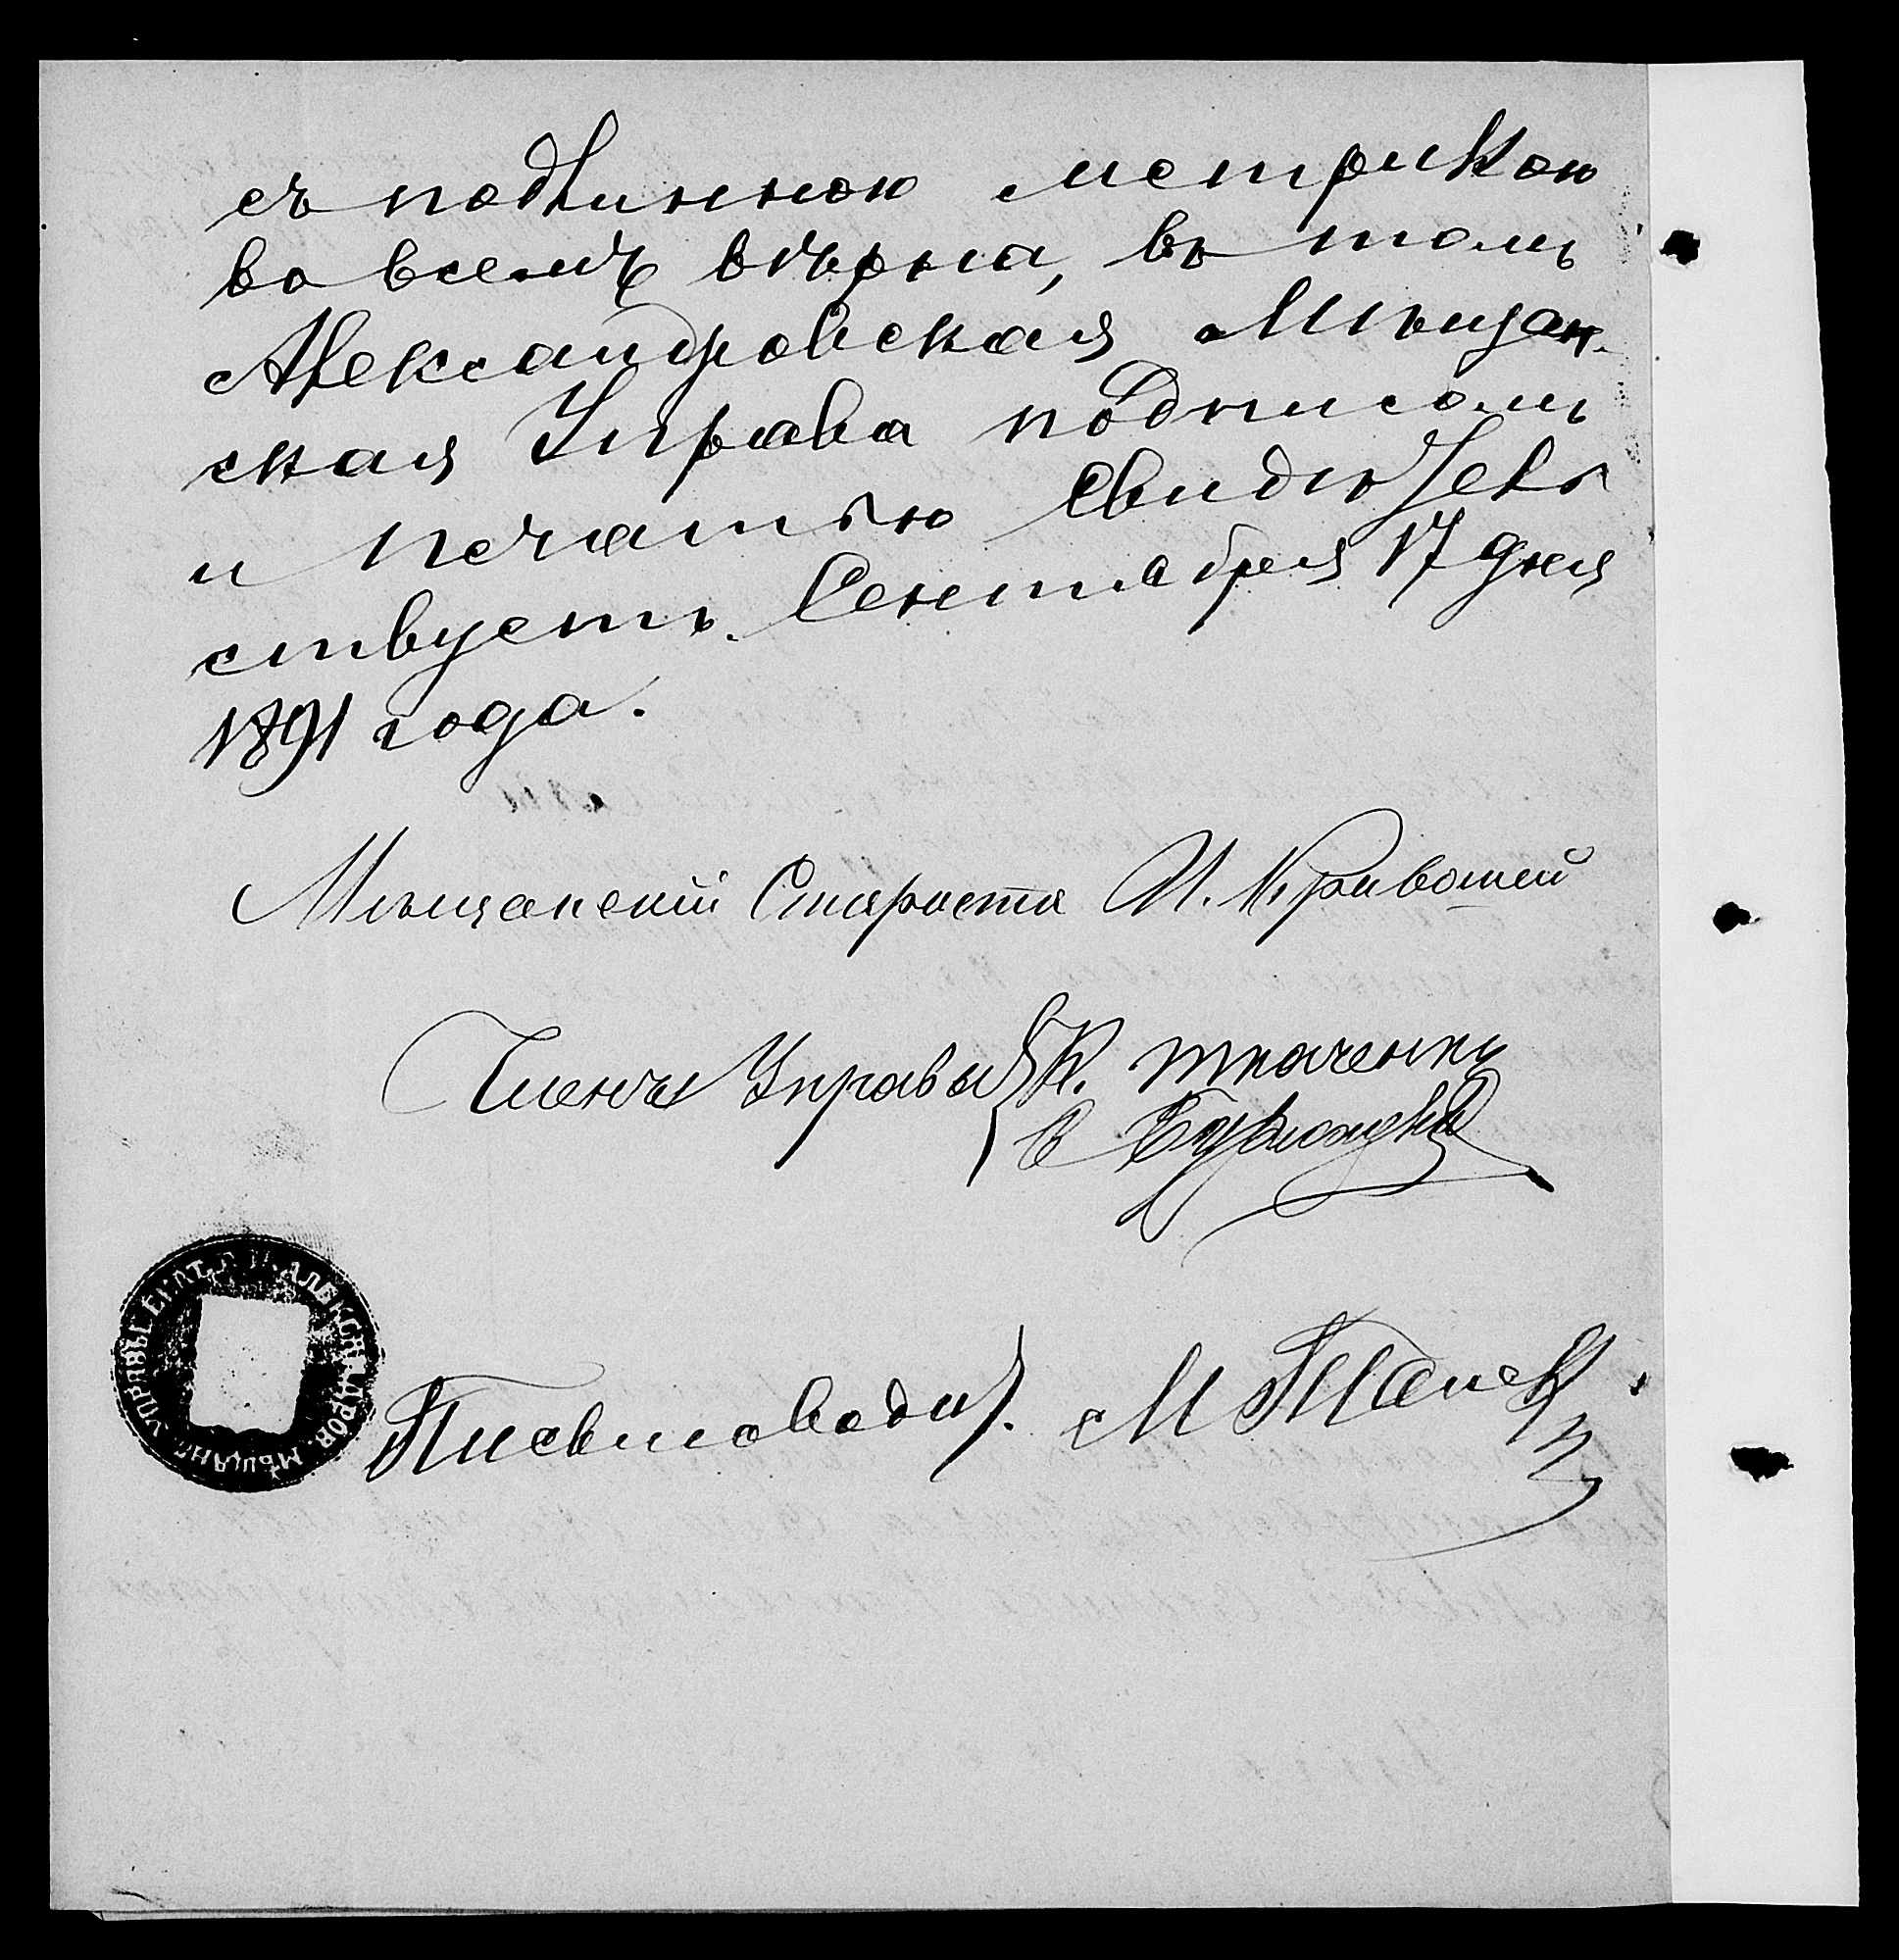 съ подлинною метрикою
во всемъ вѣрна, въ томъ
Александровская Мѣщан-
ская Управа подписомъ
и печатью свидѣтель
ствуетъ. Сентября 17 дня
1891 года.
Мѣщанскій Староста И. Кривошей
Члены Управы К. Ткаченко
В
УПРАВЫ ЕКАТ. Г. И. АЛЕКСАНДРОВ. МѢЩАНС.
Письмоводит. М